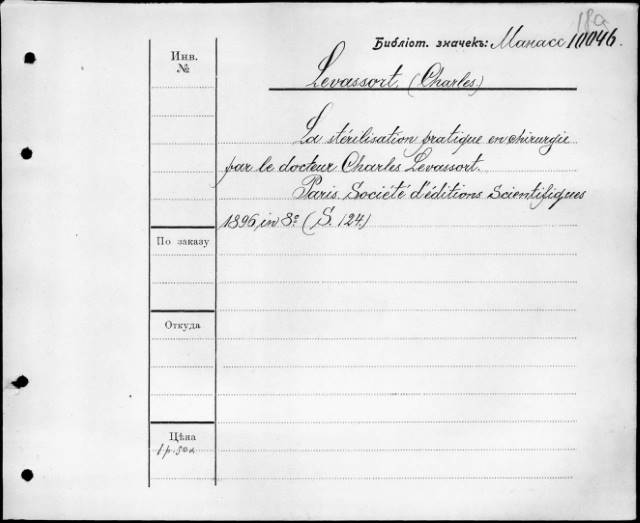 18a
Библіот. значекъ: Манасс 10046.
Инв.
№
Levassort. (Charles.)
La stérilisation pratique en chirurgie
par le docteur Charles Levassort.
Paris. Société d'éditions Scientifiques
1896, in 8º (S. 124.)
По заказу
Откуда
Цѣна
1 р. 50 к